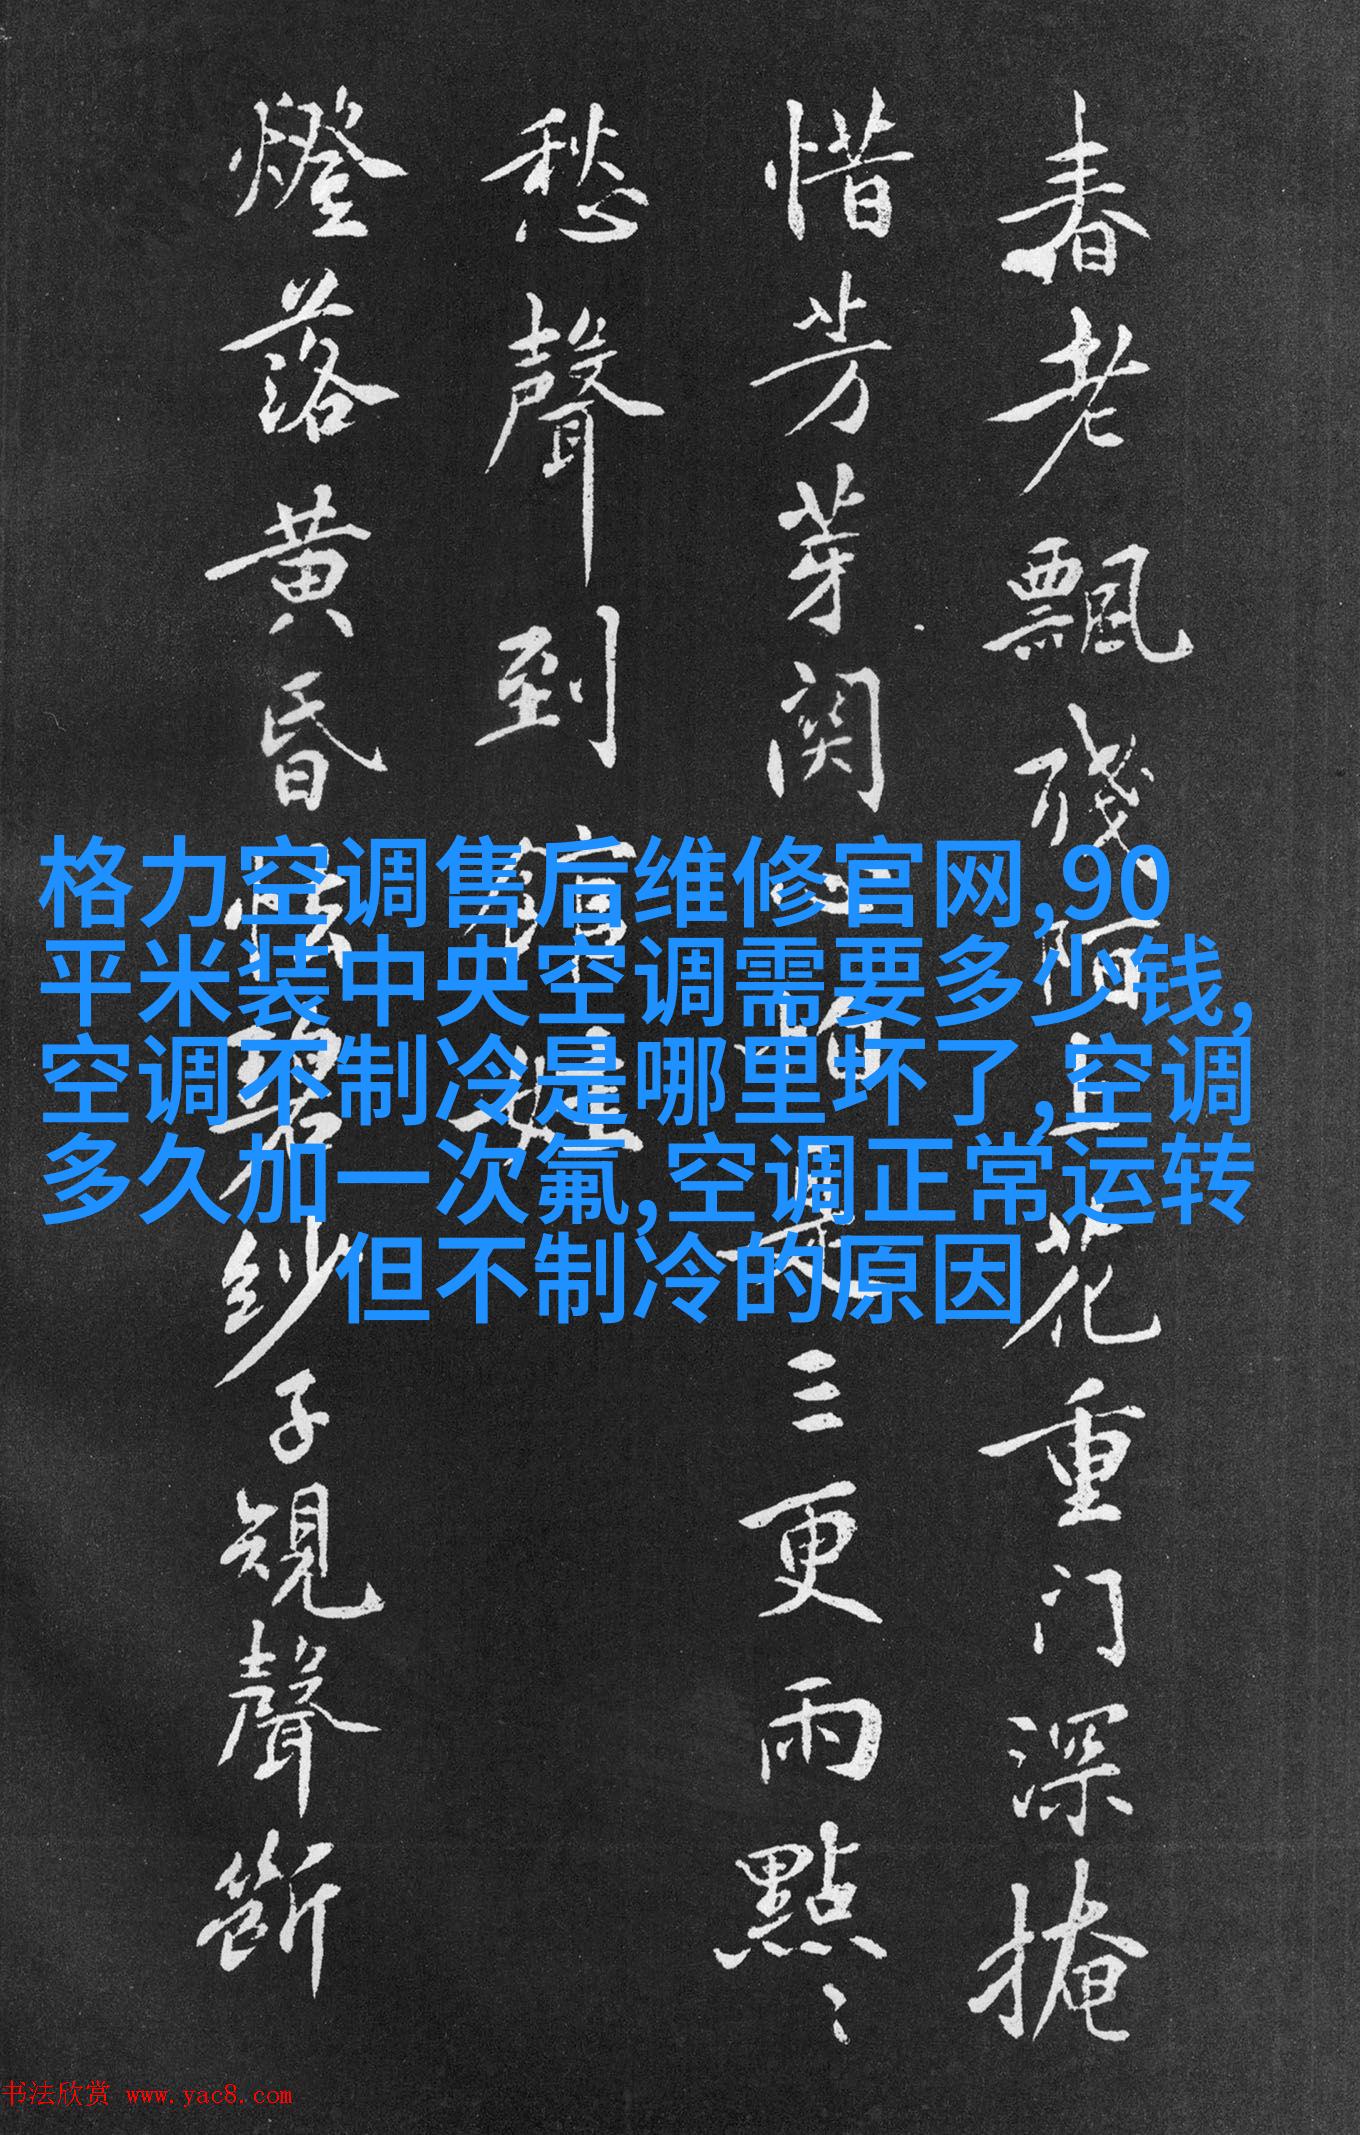 春老飄殘陌上花重门深掩
惜芳芽関心怕是三更雨點〻
愁聲到館娃
燈落黄昏怯碧紗子規聲斷
格力空调售后维修官网,90
平米装中央空调需要多少钱,
空调不制冷是哪里坏了,空调
多久加一次氟,空调正常运转
但不制冷的原因
书法欣赏 www.yac8.com